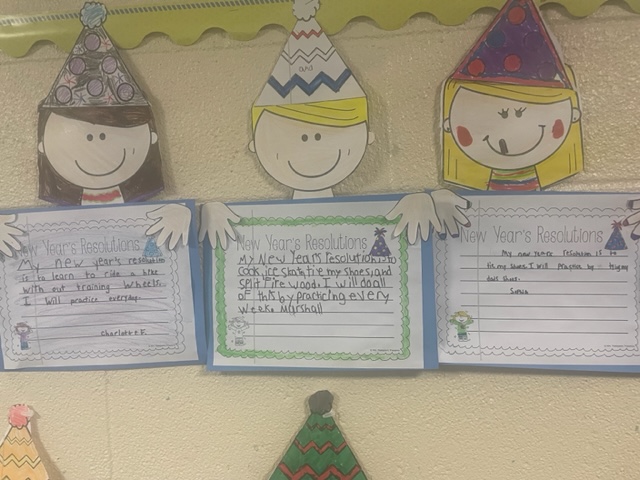 and
New Year's Resolutions
My new year's resolution
is to learn to ride a bike
with out training wheels.
I will practice everyday.
Charlotte F.
New Year's Resolutions
My New Years resolution is to
cook, ice skate, tie my shoes, and
split fire wood. I will do all
of this by practicing every
week. Marshall
New Year's Resolutions
My new years resolution is to
tie my shoes. I will practis by
Sophia